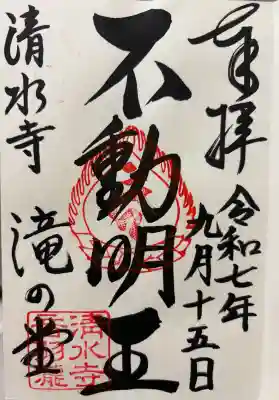 奉拝
令和七年
九月十五日
不動明王
清水寺
滝の堂
清水寺